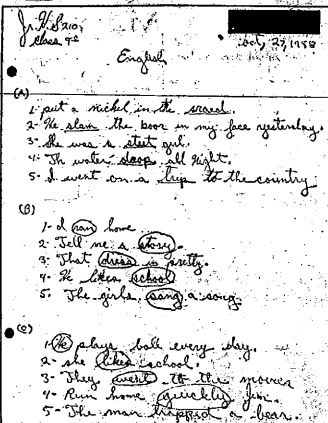 Jr. H. S 210
Class 7
Oct, 27, 1958
English
(A)
1- put a nickel in the
2- He slam the boor in my face yesterday.
3- she was a steet girl.
4- Th water droop all night.
5- I went on a trip to the country
(B)
1- I ran home
2- Tell me a story.
3- That dress is pretty.
4- He likes school
5. The girls sang a song.
(C)
1- He plays ball every day.
2- she likes school.
3- They went to the movies
4- Run home quickly Jim.
5- The man trapped a bear.